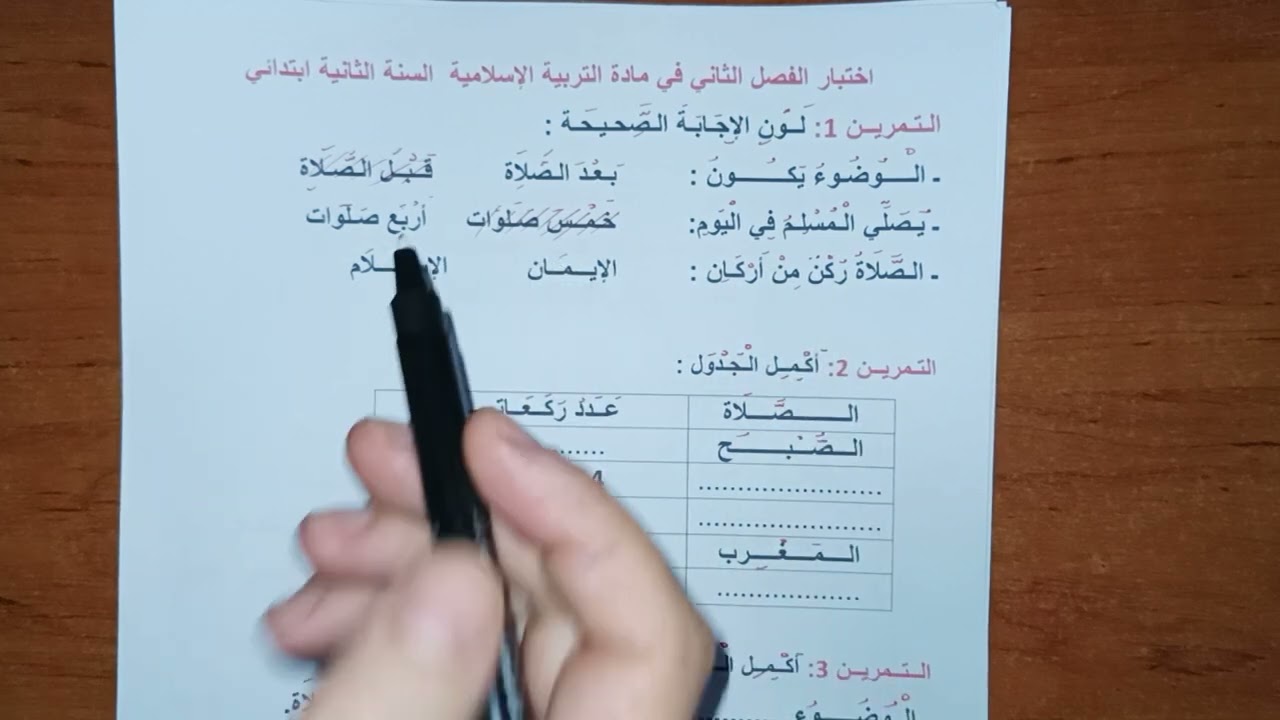 اختبار الفصل الثاني في مادة التربية الإسلامية السنة الثانية ابتدائي
التمرين 1: لَوِّنِ الإِجَابَةَ الصَّحِيحَة :
- الْوُضُوءُ يَكُونُ : بَعْدَ الصَّلَاةِ قَبْلَ الصَّلَاةِ
- يُصَلِّي الْمُسْلِمُ فِي الْيَوْمِ: خَمْسَ صَلَوَاتٍ أَرْبَع صَلَوَات
- الصَّلَاةُ رُكْنٌ مِنْ أَرْكَانِ : الإِيمَان
التمرين 2: أَكْمِلِ الْجَدْوَل :
الصَّلَاة عَدَدُ رَكَعَات
الصُّبْح ........
..................... 4
.....................
الْمَغْرِب
.................
التمرين 3: أَكْمِلِ
الْوُضُوء ........